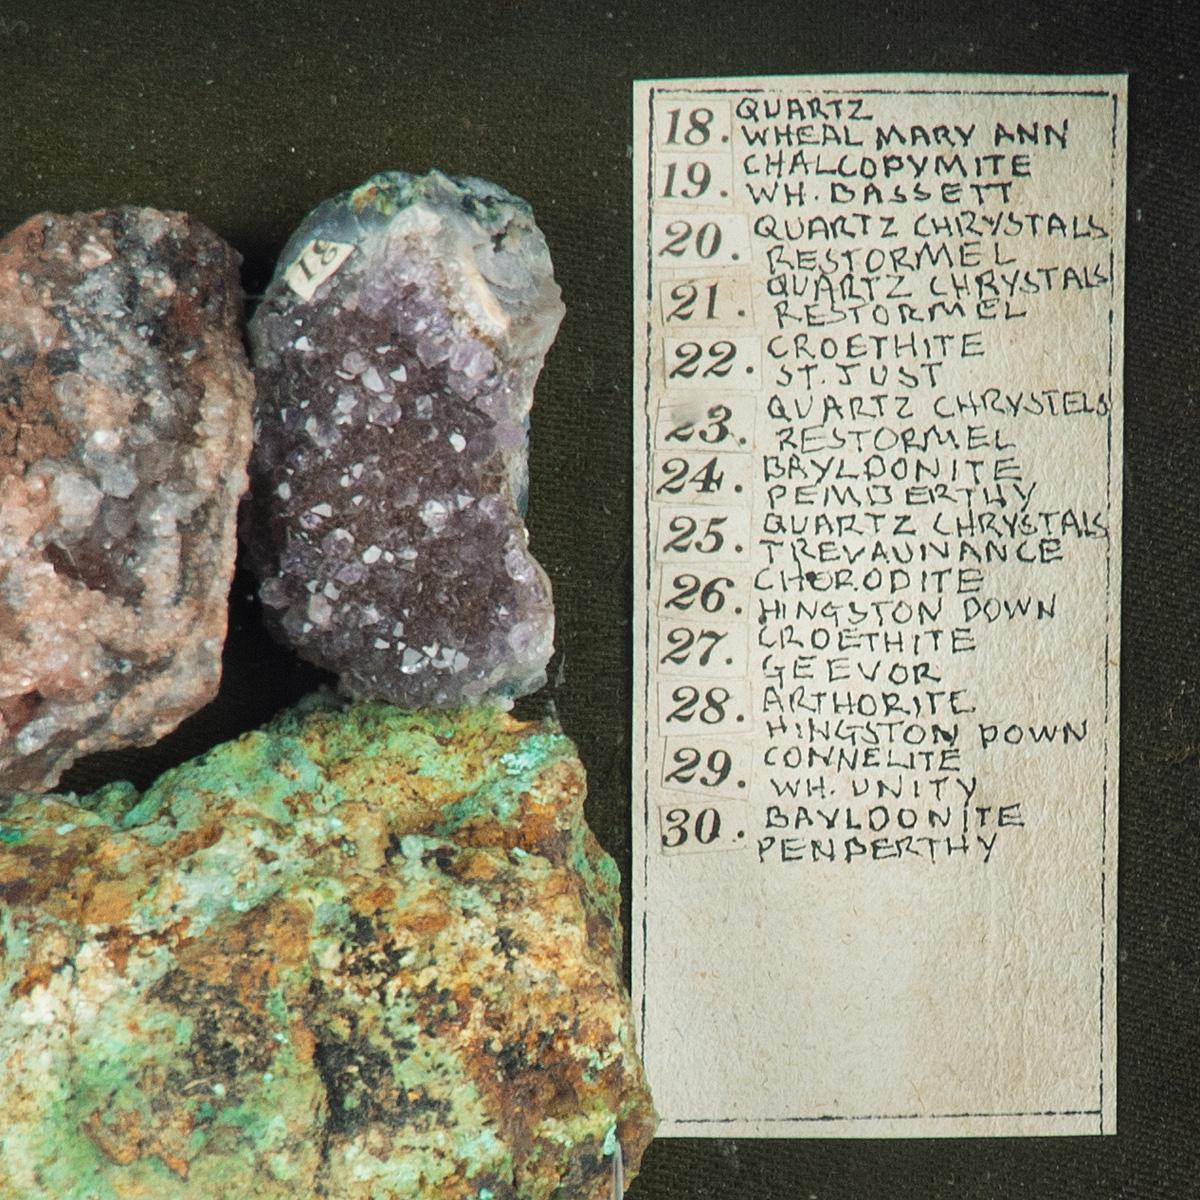 18
18. QUARTZ
WHEAL MARY ANN
19. CHALCOPYMITE
WH. BASSETT
20. QUARTZ CHRYSTALS
RESTORMEL
21. QUARTZ CHRYSTALS
RESTORMEL
22. CROETHITE
ST. JUST
23. QUARTZ CHRYSTELS
RESTORMEL
24. BAYLDONITE
PEMBERTHY
25. QUARTZ CHRYSTALS
TREVAUNANCE
26. CHORODITE
HINGSTON DOWN
27. CROETHITE
GEEVOR
28. ARTHORITE
HINGSTON DOWN
29. CONNELITE
WH. UNITY
30. BAYLDONITE
PENBERTHY